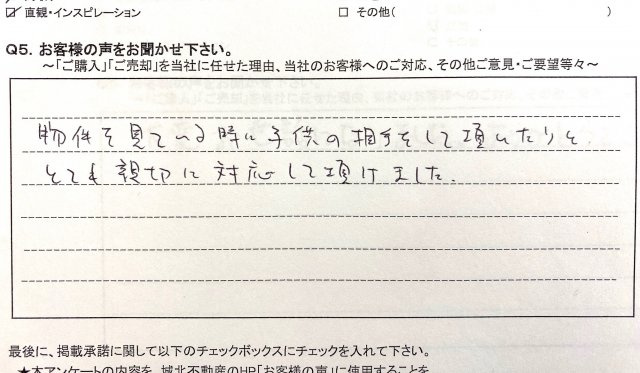 ☑ 直観・インスピレーション　□ その他(　　　)
Q5. お客様の声をお聞かせ下さい。
～「ご購入」「ご売却」を当社に任せた理由、当社のお客様へのご対応、その他ご意見・ご要望等々～
物件を見ている時に子供の相手をして頂いたりと
とても親切に対応して頂けました.
最後に、掲載承諾に関して以下のチェックボックスにチェックを入れて下さい。
★本アンケートの内容を、城北不動産のHP「お客様の声」に使用することを